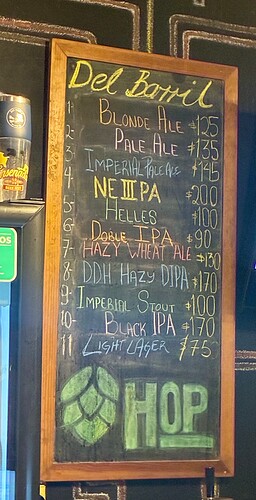 Del Barril
1- Blonde Ale $125
2- Pale Ale $135
3- Imperial Pale Ale $145
4 NE III PA $200
5- Helles $100
6- Doble IPA $90
7- Hazy Wheat Ale $130
8 DDH Hazy DIPA $170
9- Imperial Stout $100
10- Black IPA $170
11 Light Lager $75
HOP